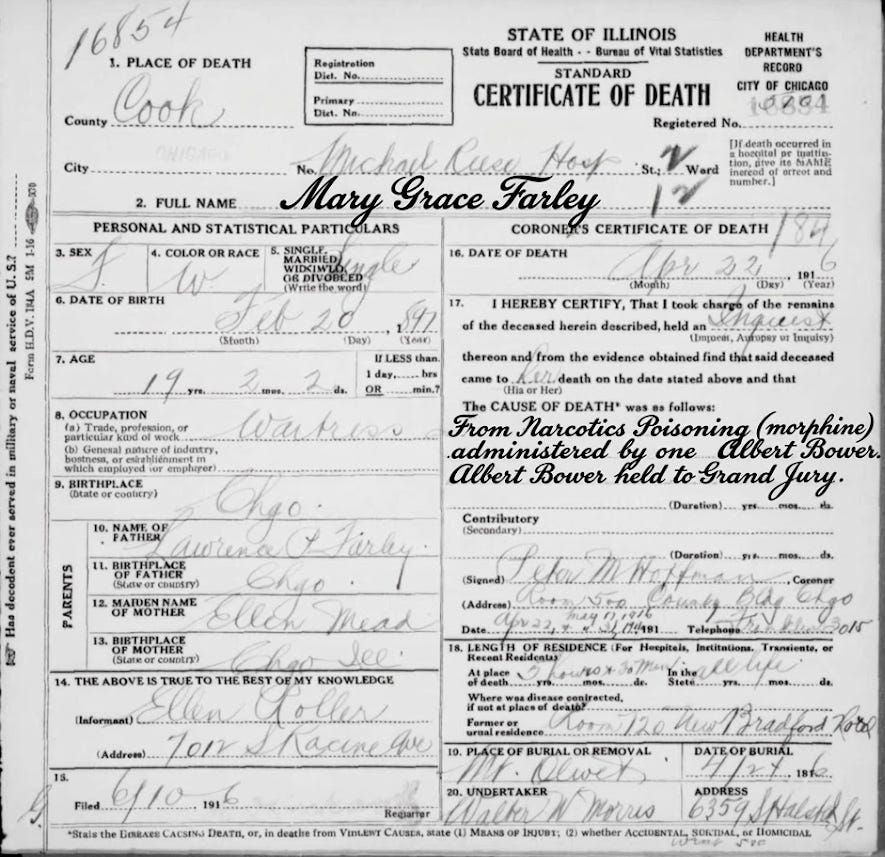 16854
STATE OF ILLINOIS
State Board of Health - - Bureau of Vital Statistics
STANDARD
CERTIFICATE OF DEATH
HEALTH
DEPARTMENT'S
RECORD
CITY OF CHICAGO
Registered No.
1. PLACE OF DEATH
County Cook
Registration
Dist. No.
Primary
Dist. No.
City CHICAGO No. Michael Reese Hosp St.; 2 Ward
12
[If death occurred in
a hospital or institu-
tion, give its NAME
instead of street and
number.]
2. FULL NAME Mary Grace Farley
184
PERSONAL AND STATISTICAL PARTICULARS
3. SEX F. 4. COLOR OR RACE W 5. SINGLE, MARRIED, WIDOWED, OR DIVORCED (Write the word) Single
6. DATE OF BIRTH
Feb 20, 1897
(Month) (Day) (Year)
7. AGE
19 yrs. 2 mos. 2 ds.
If LESS than
1 day, hrs
OR min.?
8. OCCUPATION
(a) Trade, profession, or
particular kind of work Waitress
(b) General nature of industry,
business, or establishment in
which employed (or employer)
9. BIRTHPLACE
(State or country) Chgo.
PARENTS
10. NAME OF
FATHER Lawrence P Farley.
11. BIRTHPLACE
OF FATHER
(State or country) Chgo.
12. MAIDEN NAME
OF MOTHER Ellen Mead
13. BIRTHPLACE
OF MOTHER
(State or country) Chgo Ill
14. THE ABOVE IS TRUE TO THE BEST OF MY KNOWLEDGE
(Informant) Ellen Roller
(Address) 7012 S Racine Ave
15.
Filed 6/10 1916
Registrar
CORONER'S CERTIFICATE OF DEATH
16. DATE OF DEATH
Apr 22, 1916
(Month) (Day) (Year)
17. I HEREBY CERTIFY, That I took charge of the remains
of the deceased herein described, held an Inquest
(Inquest, Autopsy or Inquiry)
thereon and from the evidence obtained find that said deceased
came to her death on the date stated above and that
(His or Her)
The CAUSE OF DEATH* was as follows:
From Narcotics Poisoning (morphine)
administered by one Albert Bower.
Albert Bower held to Grand Jury.
(Duration) yrs. mos. ds.
Contributory
(Secondary)
(Duration) yrs. mos. ds.
(Signed) Peter M Hoffman, Coroner
(Address) Room 500 County Bldg Chgo
Date Apr 22, May 17, 1916 191 Telephone
18. LENGTH OF RESIDENCE (For Hospitals, Institutions, Transients, or
Recent Residents)
At place
of death 3 hours & 30 Min yrs. mos. ds. In the
State all life yrs. mos. ds.
Where was disease contracted,
if not at place of death?
Former or
usual residence Room 120 New Bradford Hotel
19. PLACE OF BURIAL OR REMOVAL
Mt. Olivet
DATE OF BURIAL
4/24 1916
20. UNDERTAKER
Walter W Morris
ADDRESS
6359 S Halsted St.
*State the DISEASE CAUSING DEATH, or, in deaths from VIOLENT CAUSES, state (1) MEANS OF INJURY; (2) whether ACCIDENTAL, SUICIDAL, or HOMICIDAL
Has decedent ever served in military or naval service of U. S.?
Form H.D.V. 184A 5M 1-16